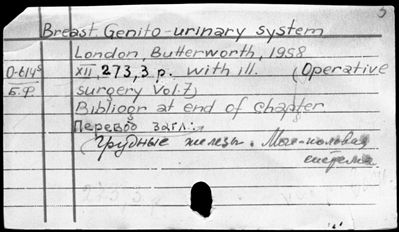 5
Breast Genito-urinary system
London Butterworth, 1958
0-614⁵ XII, 273, 3 p. with ill. (Operative
Б.Ф. surgery Vol. 7)
Bibliogr at end of chapter
Перевод загл.:
(Грудные железы. Моче-половая
система